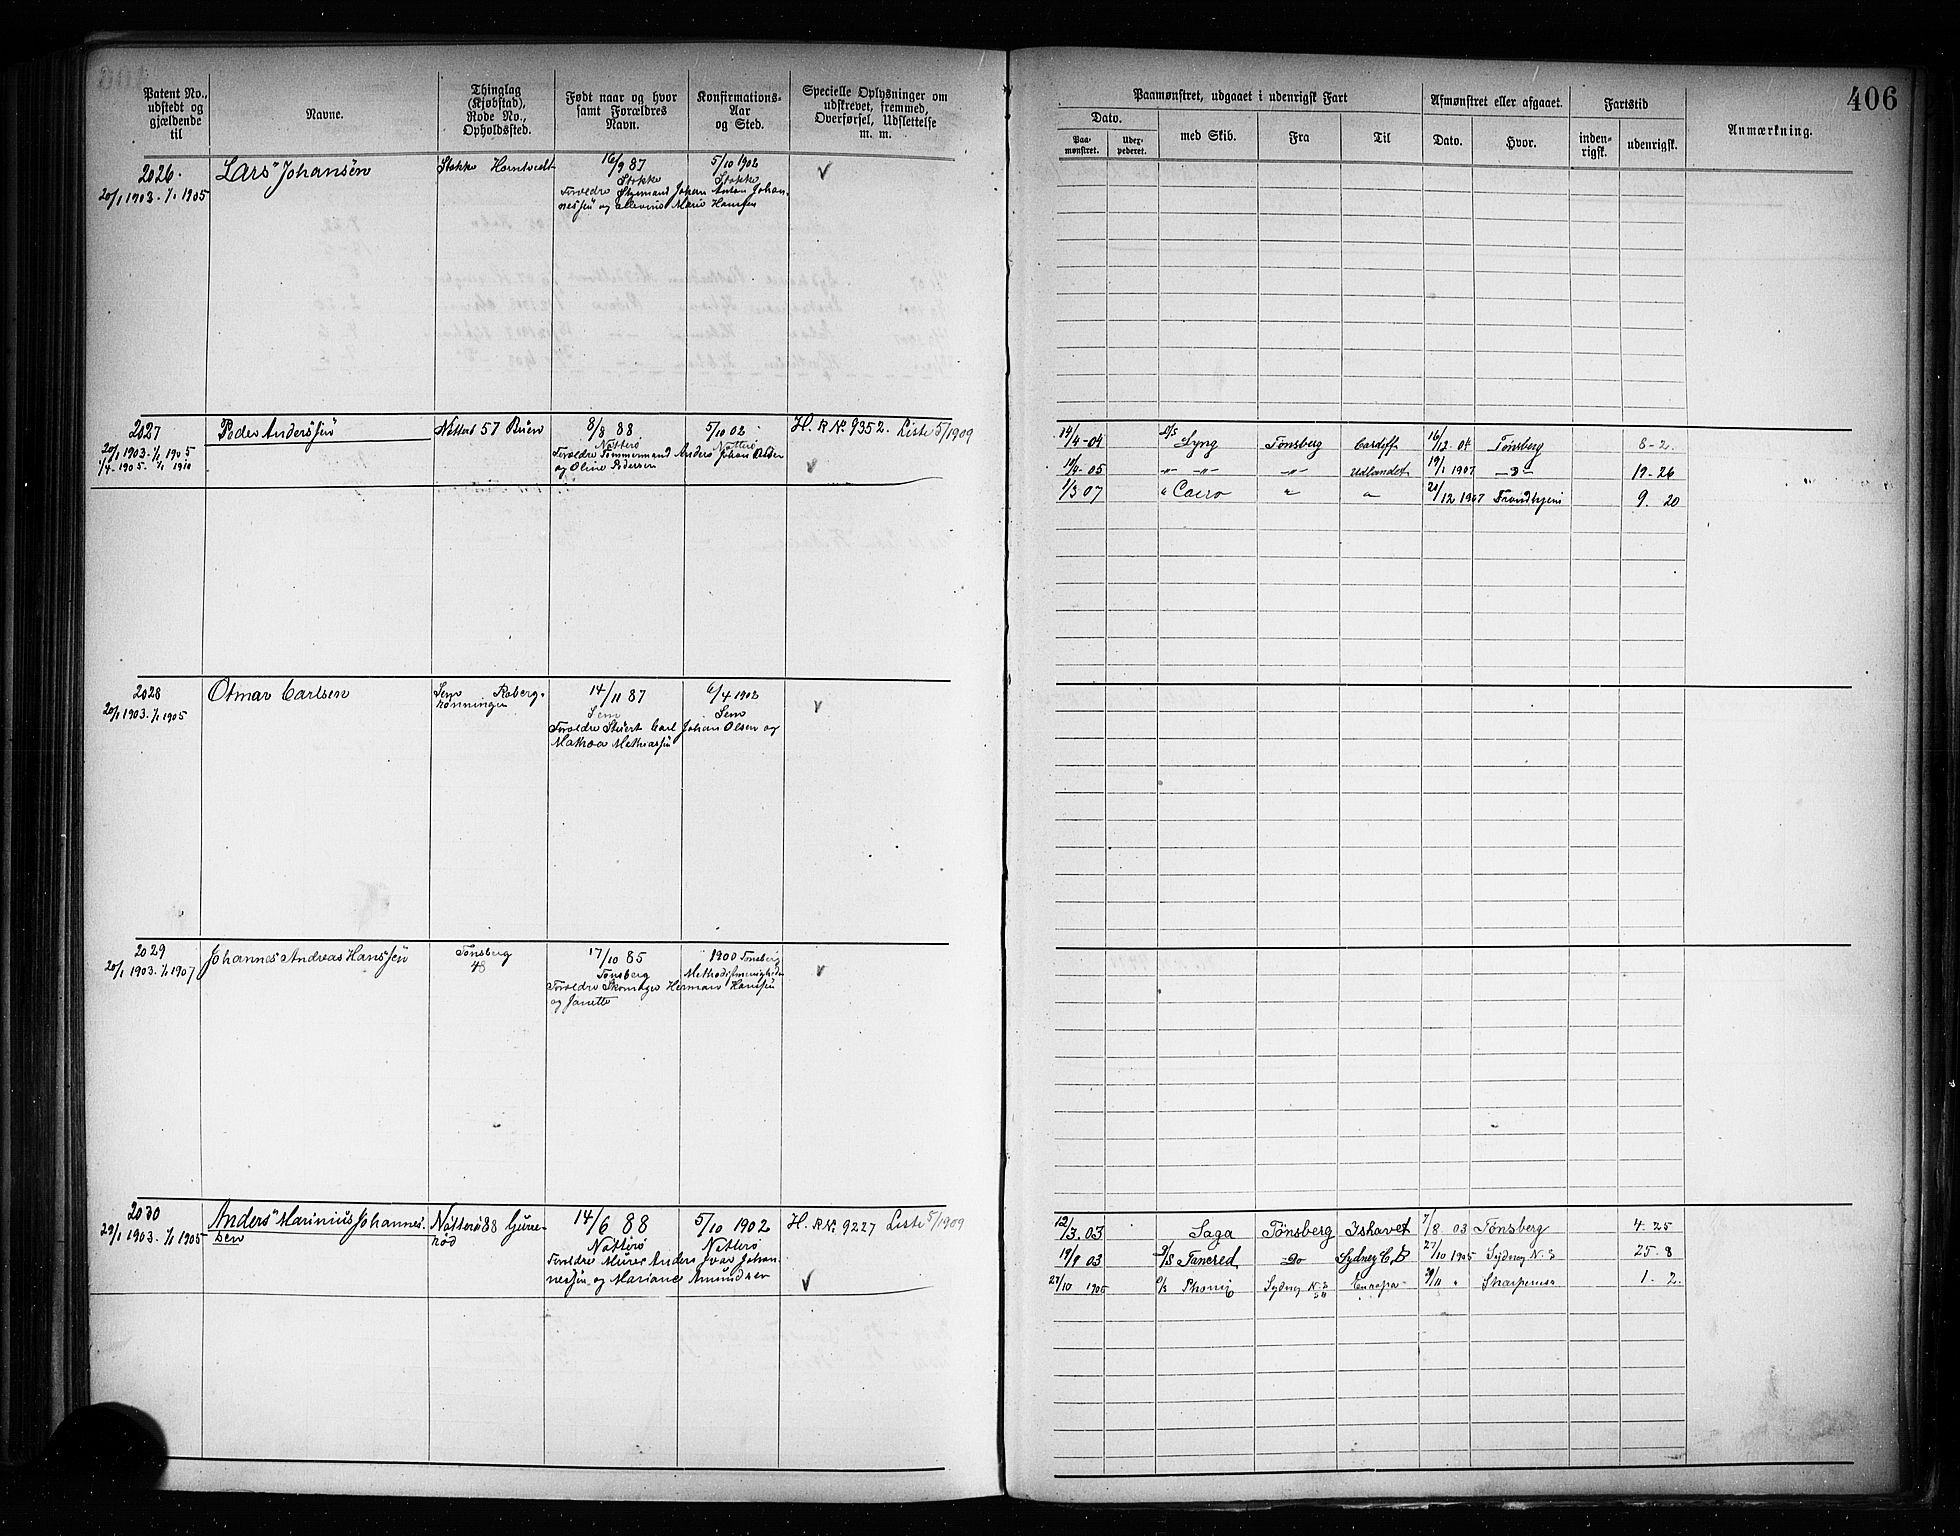 406
Patent No., udstedt og gjældende til
Navne.
Thinglag (Kjøbstad), Rode No., Opholdssted.
Født naar og hvor samt Forældres Navn.
Konfirmations-Aar og Sted.
Specielle Oplysninger om udskrevet, fremmed, Overførsel, Udslettelse m. m.
Paamønstret, udgaaet i udenrigsk Fart
Dato.
Paa-mønstret.
Uder-pederet.
med Skib.
Fra
Til
Afmønstret eller afgaaet.
Dato.
Hvor.
Fartstid
inden-rigsk.
udenrigsk.
Anmærkning.
2026.
20/1 1903. 1/1 1905
Lars" Johansen
Stokke
16/9 87
Stokke
5/10 1902
Stokke
Forældre Styrmand Johan Anton Johan-
nessen og Marie Hansen
2027
20/1 1903. 1/1 1905
1/4 1905. 1/1 1910
Peder Anderssen
57
8/8 88
Nøtterø
5/10 02
Nøtterø
H. R No. 9352. Liste 5/1909
Forældre Tømmermand Anders Johan
og Oline Pedersen
14/4-04 D/S Lyng Tønsberg Cardiff 16/12 04 Tønsberg 8-2
19/9-05 -"- -"- -"- Udlandet 19/1 1907 19-26
1/3 07 " Cairo " " 21/12 1907 Trondhjem 9. 20
2028
20/1 1903. 1/1 1905
Otmar Carlsen
Sem Roberg-
rønningen
14/11 87
Sem
6/4 1902
Sem
Forældre Stuert Carl Johan Olsen og
Mathea Mathiassen
2029
20/1 1903. 1/1 1907
Johannes Andreas Hanssen
Tønsberg
48
17/10 85
Tønsberg
1900 Tønsberg
Methodistmenigheden
Forældre Skomager Herman Hanssen
og Janette
2030
29/1 1903. 1/1 1905
Anders" Marinius Johannes-
sen
Nøtterø 88
14/6 88
Nøtterø
5/10 1902
Nøtterø
H. R No. 9227 Liste 5/1909
Forældre Murer Anders Ivar Johan-
nessen og Mariane Amundsen
12/3 03 Saga Tønsberg Ishavet 7/8 03 Tønsberg 4. 25
19/9 03 D/S Tancred Do Sydney C.B 27/10 1905 Sydney N.S 25-8
27/10 1905 Sydney N.S Europa 1. 2.